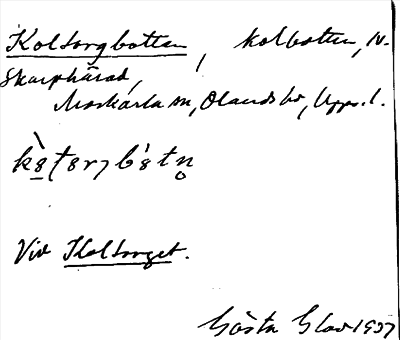 Koltorgbotten, kolbotten, N.
Skarphärad,
Morkarla sn, Olands hd, Upps. l.
Vid Koltorget.
Gösta Glad 1937